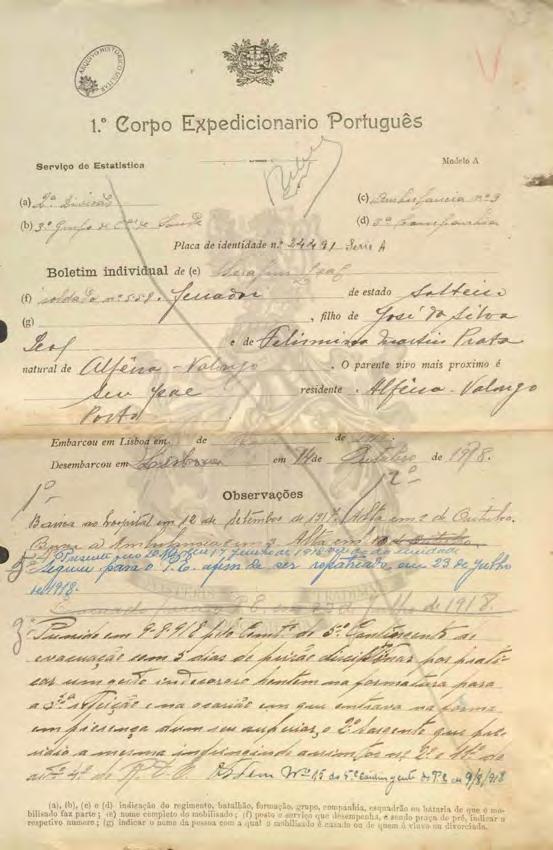 ARQUIVO HISTORICO MILITAR
1.º Corpo Expedicionario Português
Serviço de Estatistica
Modelo A
(a) 2ª Divisão
(c) Ambulancia nº 3
(b) 3º Grupo de Saude
(d)
Placa de identidade n.º 24491 Serie A
Boletim individual de (e) Serafim Leal
(f) soldado nº 558 de estado Solteiro
(g) , filho de José da Silva
Leal e de Felismina Martins Prata
natural de Alfêna - Valongo . O parente vivo mais proximo é
Seu pae residente Alfêna - Valongo
Porto
Embarcou em Lisboa em de de
Desembarcou em Lisboa em 14 de Outubro de 1918.
Observações
1º
2º
Baixa ao hospital em 12 de Setembro de 1917. Alta em 2 de Outubro.
Baixa á Ambulancia em 3 Alta em
17 Junho de 1918
Seguiu para o P.E. afim de ser repatriado em 23 de julho
de 1918.
P.E. em 23 de julho de 1918.
3º
Punido em 9-9-918 pelo Comte. do 5º Contingente de
evacuação com 5 dias de prisão disciplinar por prati-
car um gesto indecoroso hontem na formatura para
a 3ª refeição e na ocasião em que entrava na forma
em presença dum seu superior, o 2º Sargento que pre-
sidia a mesma infringindo
artº 4º do R.D.E. Ordem Nº 15 do 5º Contingente do P.E. de 9/9/918
(a), (b), (c) e (d) indicação do regimento, batalhão, formação, grupo, companhia, esquadrão ou bataria de que o mo-
bilisado faz parte; (e) nome completo do mobilisado; (f) posto e serviço que desempenha, e sendo praça de pré, indicar o
respetivo numero; (g) indicar o nome da pessoa com a qual o mobilisado é casado ou de quem é viuvo ou divorciado.